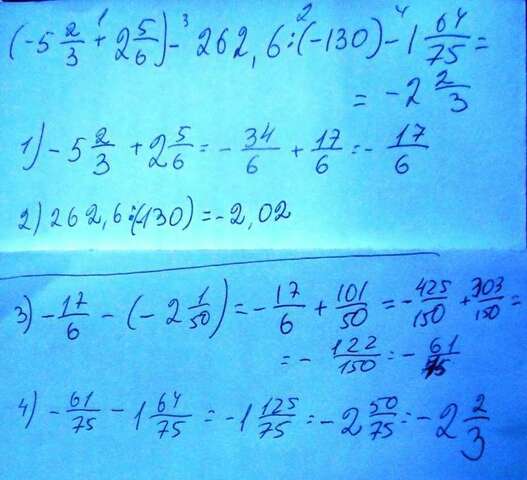 (-5 2/3 +¹ 2 5/6) -³ 262,6 :² (-130) -⁴ 1 64/75 =
= -2 2/3
1) -5 2/3 + 2 5/6 = -34/6 + 17/6 = -17/6
2) 262,6 : (-130) = -2,02
3) -17/6 - (-2 1/50) = -17/6 + 101/50 = -425/150 + 303/150 =
= -122/150 = -61/75
4) -61/75 - 1 64/75 = -1 125/75 = -2 50/75 = -2 2/3